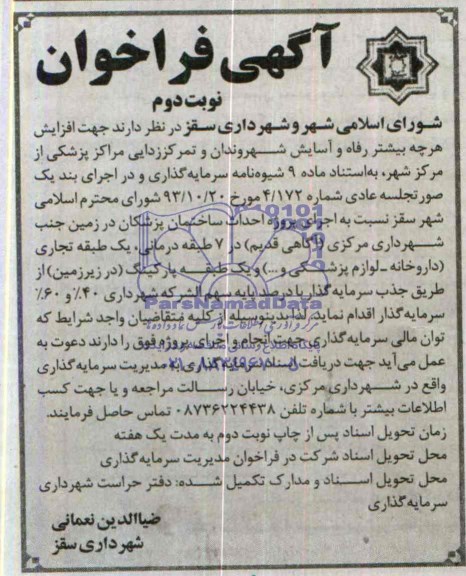 آگهی فراخوان
نوبت دوم
شورای اسلامی شهر و شهرداری سقز در نظر دارند جهت افزایش
هرچه بیشتر رفاه و آسایش شهروندان و تمرکززدایی مراکز پزشکی از
مرکز شهر، به‌استناد ماده ۹ شیوه‌نامه سرمایه‌گذاری و در اجرای بند یک
صورتجلسه عادی شماره ۴/۱۷۲ مورخ ۹۳/۱۰/۲۰ شورای محترم اسلامی
شهر سقز نسبت به اجرای پروژه احداث ساختمان پزشکان در زمین جنب
شهرداری مرکزی (آگاهی قدیم) در ۷ طبقه درمانی، یک طبقه تجاری
(داروخانه ـ لوازم پزشکی و...) و یک طبقه پارکینگ (در زیرزمین) از
طریق جذب سرمایه‌گذار با درصد پایه سهم الشرکه شهرداری ۴۰٪ و ۶۰٪
سرمایه‌گذار اقدام نماید. لذا بدینوسیله از کلیه متقاضیان واجد شرایط که
توان مالی سرمایه‌گذاری جهت انجام و اجرای پروژه فوق را دارند دعوت به
عمل می‌آید جهت دریافت اسناد سرمایه‌گذاری به مدیریت سرمایه‌گذاری
واقع در شهرداری مرکزی، خیابان رسالت مراجعه و یا جهت کسب
اطلاعات بیشتر با شماره تلفن ۰۸۷۳۶۲۲۴۴۳۸ تماس حاصل فرمایند.
زمان تحویل اسناد پس از چاپ نوبت دوم به مدت یک هفته
محل تحویل اسناد شرکت در فراخوان مدیریت سرمایه‌گذاری
محل تحویل اسناد و مدارک تکمیل شده: دفتر حراست شهرداری
سرمایه‌گذاری
ضیاالدین نعمانی
شهرداری سقز
ParsNamadData